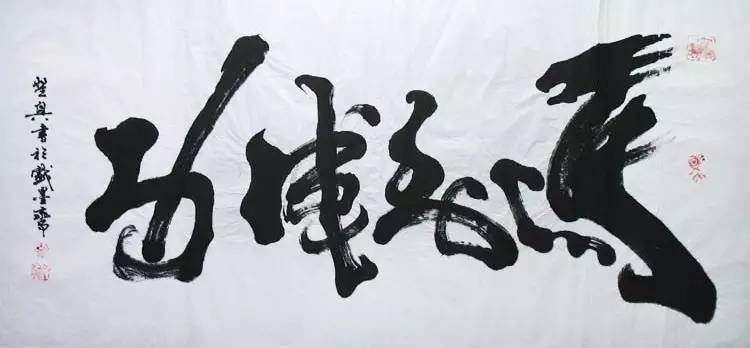 馬到成功
楚興書於戲墨齋